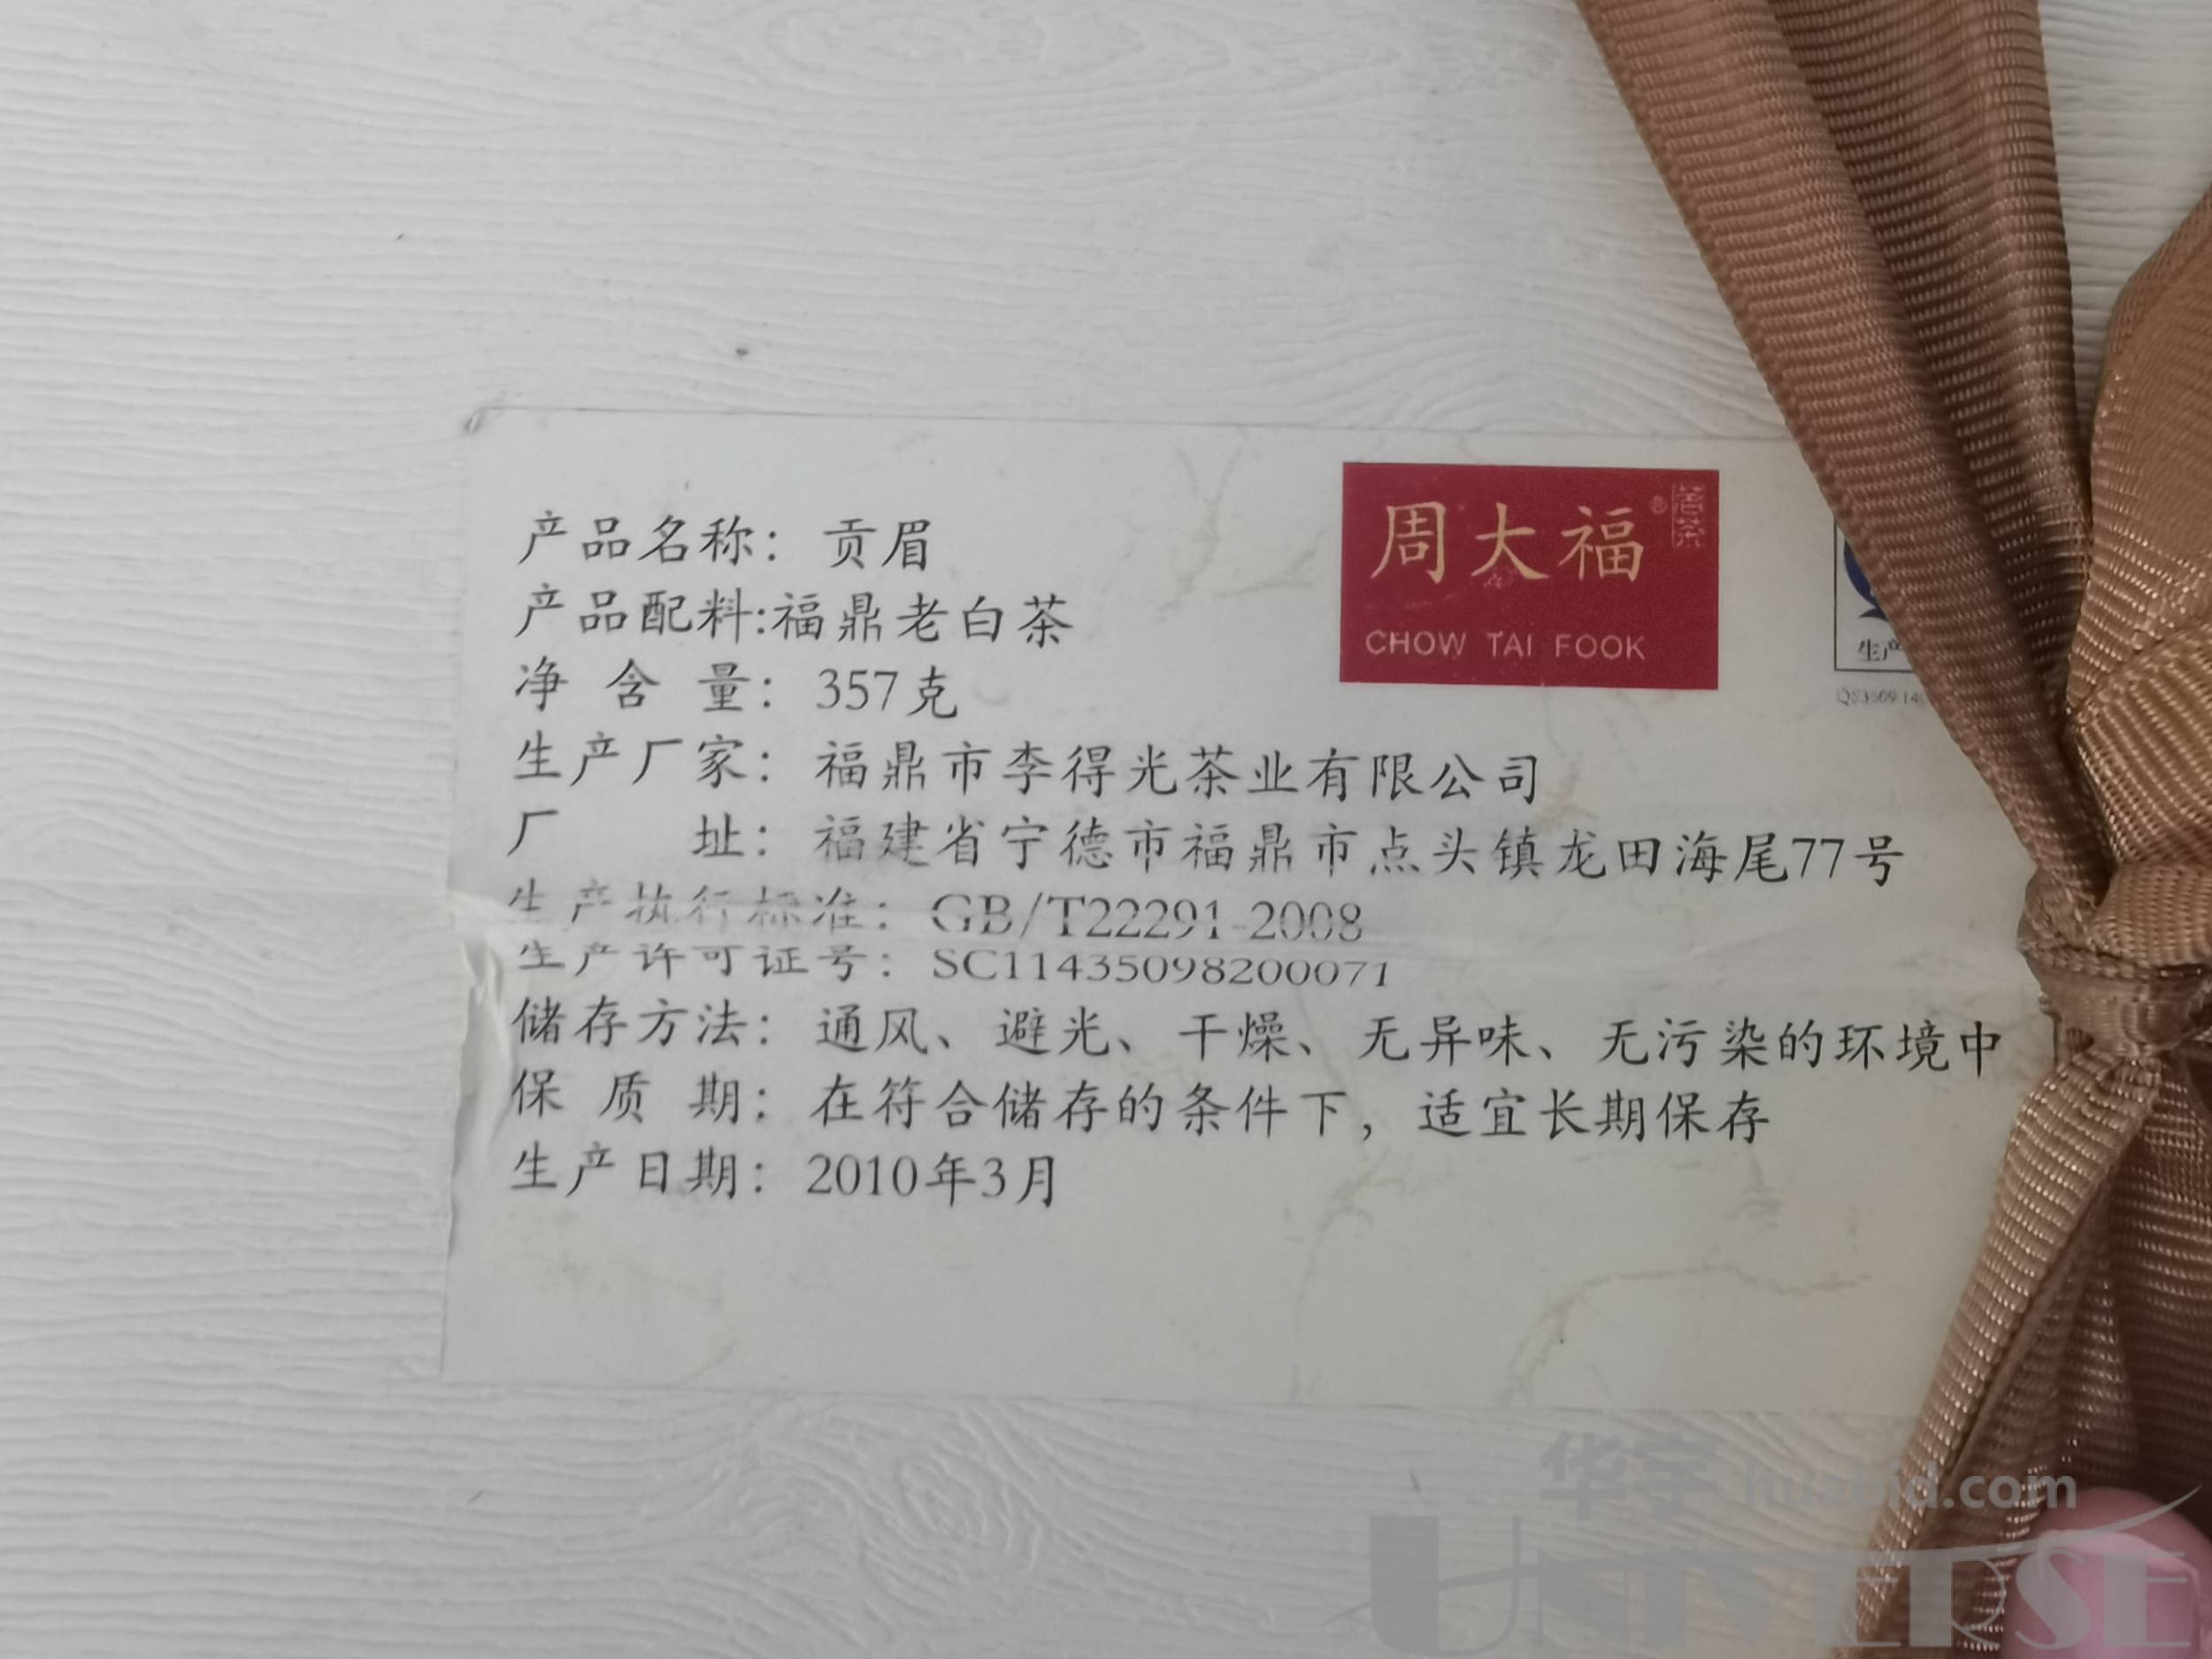 产品名称：贡眉
产品配料:福鼎老白茶
净含量：357克
生产厂家：福鼎市李得光茶业有限公司
厂址：福建省宁德市福鼎市点头镇龙田海尾77号
生产执行标准：GB/T22291-2008
生产许可证号：SC11435098200071
储存方法：通风、避光、干燥、无异味、无污染的环境中
保质期：在符合储存的条件下，适宜长期保存
生产日期：2010年3月
周大福
茗茶
CHOW TAI FOOK
生产
华宇 huabid.com
UNIVERSE